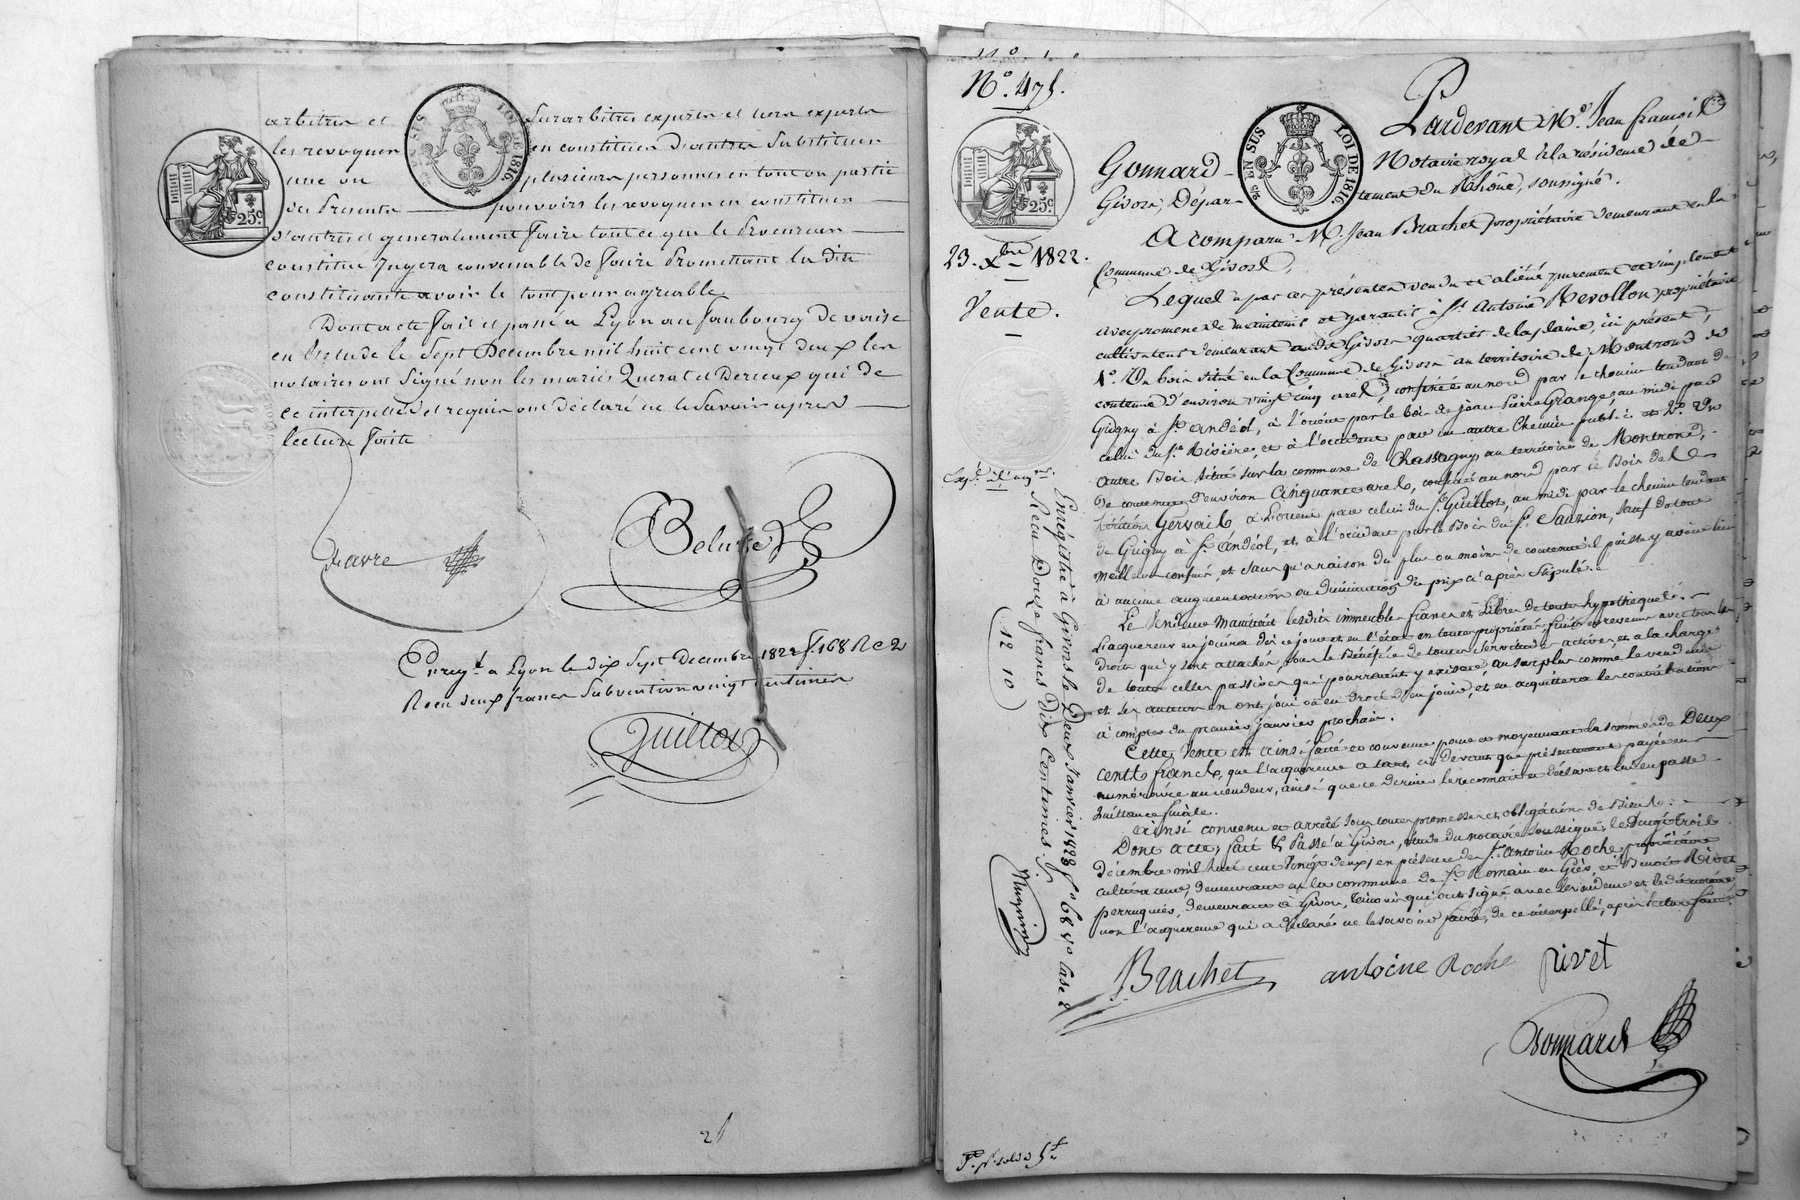 arbitres et surarbitres experts et tiers experts
les revoquer en constituer d'autres substituer
une ou plusieurs personnes en tout ou partie
des presents pouvoirs les revoquer en constituer
d'autres et generalement faire tout ce que le Procureur
constitué jugera convenable de faire Promettant la dite
constituante avoir le tout pour agréable
Dont acte fait et passé a Lyon au faubourg de vaise
en l'étude le sept Decembre mil huit cent vingt deux les
notaires ont signé non les mariés Querat et Derieux qui de
ce interpellés et requis ont déclaré ne le savoir apres
lecture faite
25c.
EN SUS
LOI DE 1816.
favre
Enregt. a Lyon le dix sept Decembre 1822 f. 168 R c 2
Recu deux francs subvention vingt centimes
Guillot
21
N.° 475.
25c.
23. Xbre 1822.
Vente.
EN SUS
LOI DE 1816.
Pardevant M.e Jean françois
Gonnard Notaire royal à la résidence de
Givors, Département du Rhône, soussigné.
A comparu M. Jean Brachet propriétaire demeurant en la
Commune de Givors,
Lequel a par ces présentes vendu et aliéné purement et simplement
avec promesse de maintenir et garantir à Sr. Antoine Revollon propriétaire
cultivateur demeurant audit Givors quartier de la plaine, ici présent,
1.° Un bois situé en la Commune de Givors au territoire de Montrond de
contenue d'environ vingt cinq ares, confiné au nord par le chemin tendant de
Guigny à St. andéol, à l'orient par le bois de jean Pierre Grange, au midi par
celui du Sr. Rivière, et à l'occident par un autre Chemin public et 2.° Un
autre Bois situé sur la commune de Chassagny au territoire de Montrond,
de contenue d'environ Cinquante ares, confiné au nord par le Bois des
héritiers Gervais à l'orient par celui du Sr. Guillot, au midi par le chemin tendant
de Guigny à St. Andéol, et à l'occident par le Bois du Sr. Saunion, sauf de tout
meilleur confins, et sans qu'a raison du plus ou moins de contenue il puisse y avoir lieu
à aucune augmentation ou diminution du prix ci après stipulé.
Le Vendeur Maintient lesdits immeubles francs et Libres de toutes hypothèques.
L'acquéreur en jouira dès ce jour et en l'état en toute propriété fruits et revenus avec tous les
droits qui y sont attachés sous le Bénéfice de toutes Servitudes actives et à la charge
de toutes celles passives qui pourraient y exister au surplus comme le vendeur
et ses auteurs en ont joui ou eu droit d'en jouir, et en acquittera les contributions
à compter du premier janvier prochain.
Cette Vente est ainsi faite et convenue pour et moyennant la somme de Deux
cents francs, que l'acquéreur a tant ci devant que présentement payée en
numéraire au vendeur, ainsi que ce dernier le reconnait et déclare et lui en passe
quittance finale.
Ainsi convenu et arrêté sous toutes promesses et obligations de Biens.
Dont acte, fait & Passé à Givors, étude du notaire soussigné, le Vingt trois
décembre mil huit cent Vingt deux, en présence de Sr. Antoine Roche propriétaire
cultivateur, demeurant en la commune de St. Romain en Giès, et Benoit Rivet
perruquier, demeurant à Givors, témoins qui ont signé avec le vendeur et le notaire
non l'acquéreur qui a déclaré ne le savoir faire, de ce interpellé, après lecture faite.
Enregistré à Givors le Deux Janvier 1823 f.° 68 v.° case 2
Reçu Douze francs Dix Centimes.
12 10
JBrachet antoine Roche rivet
Gonnard